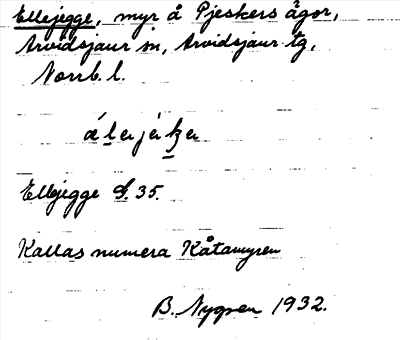 Ellejegge, myr å Pjeskers ägor,
Arvidsjaur sn, Arvidsjaur tg,
Norrb. l.
Ellejegge S. 35.
Kallas numera Kåtamyren
B. Nygren 1932.